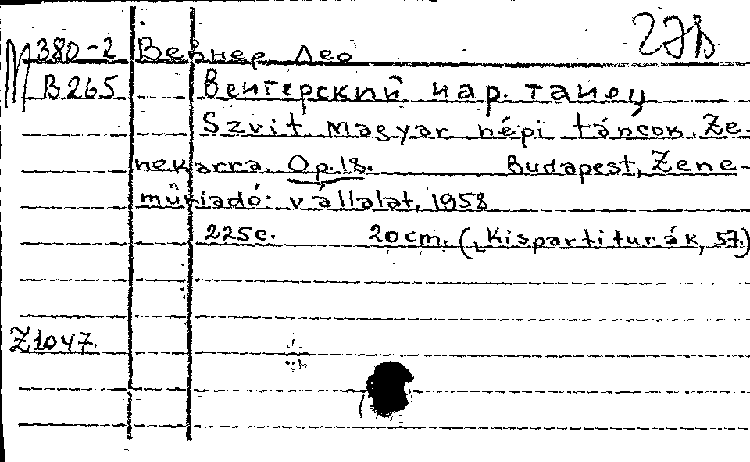 М 380-2 Вейнер Лео 27В
В265 Венгерский нар. танец
Szvit magyar népi táncok. Ze-
nekarra. Op.18. Budapest, Zene-
műkiadó: vállalat, 1958
225c. 20cm. (Kispartiturák, 57.)
Z1047